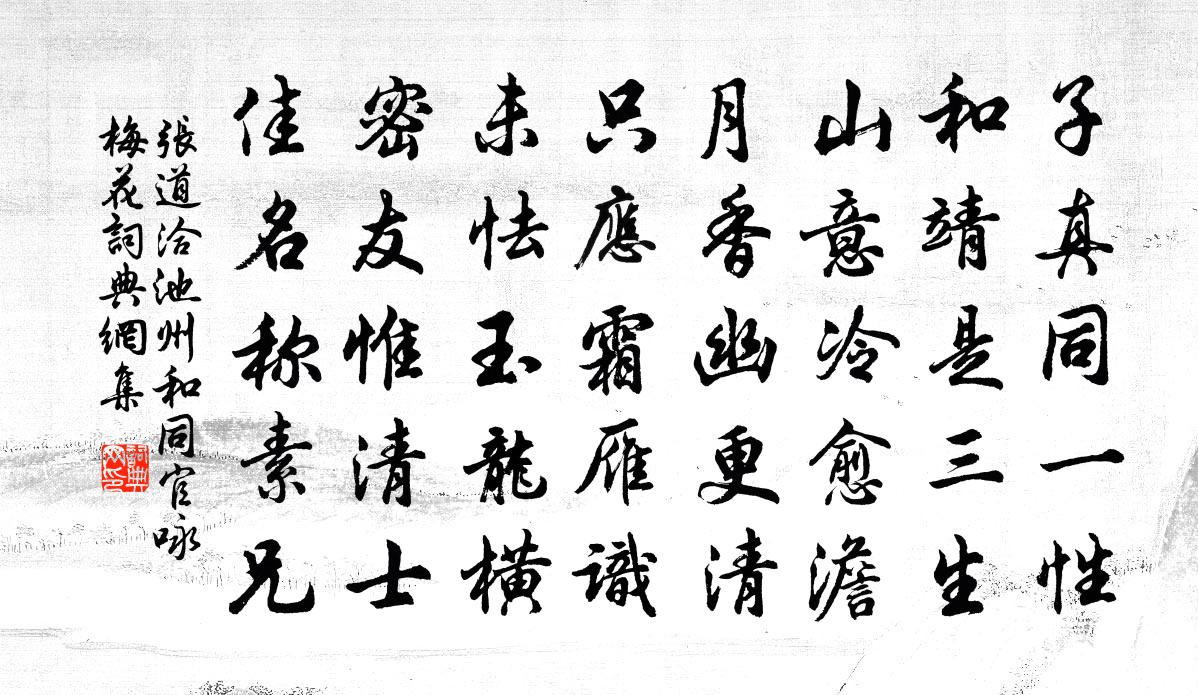 子真同一性
和靖是三生
山意冷愈澹
月香幽更清
只應霜雁識
未怯玉龍橫
密友惟清士
佳名称素兄
張道洽池州和同官咏
梅花詞典網集
詞典网印